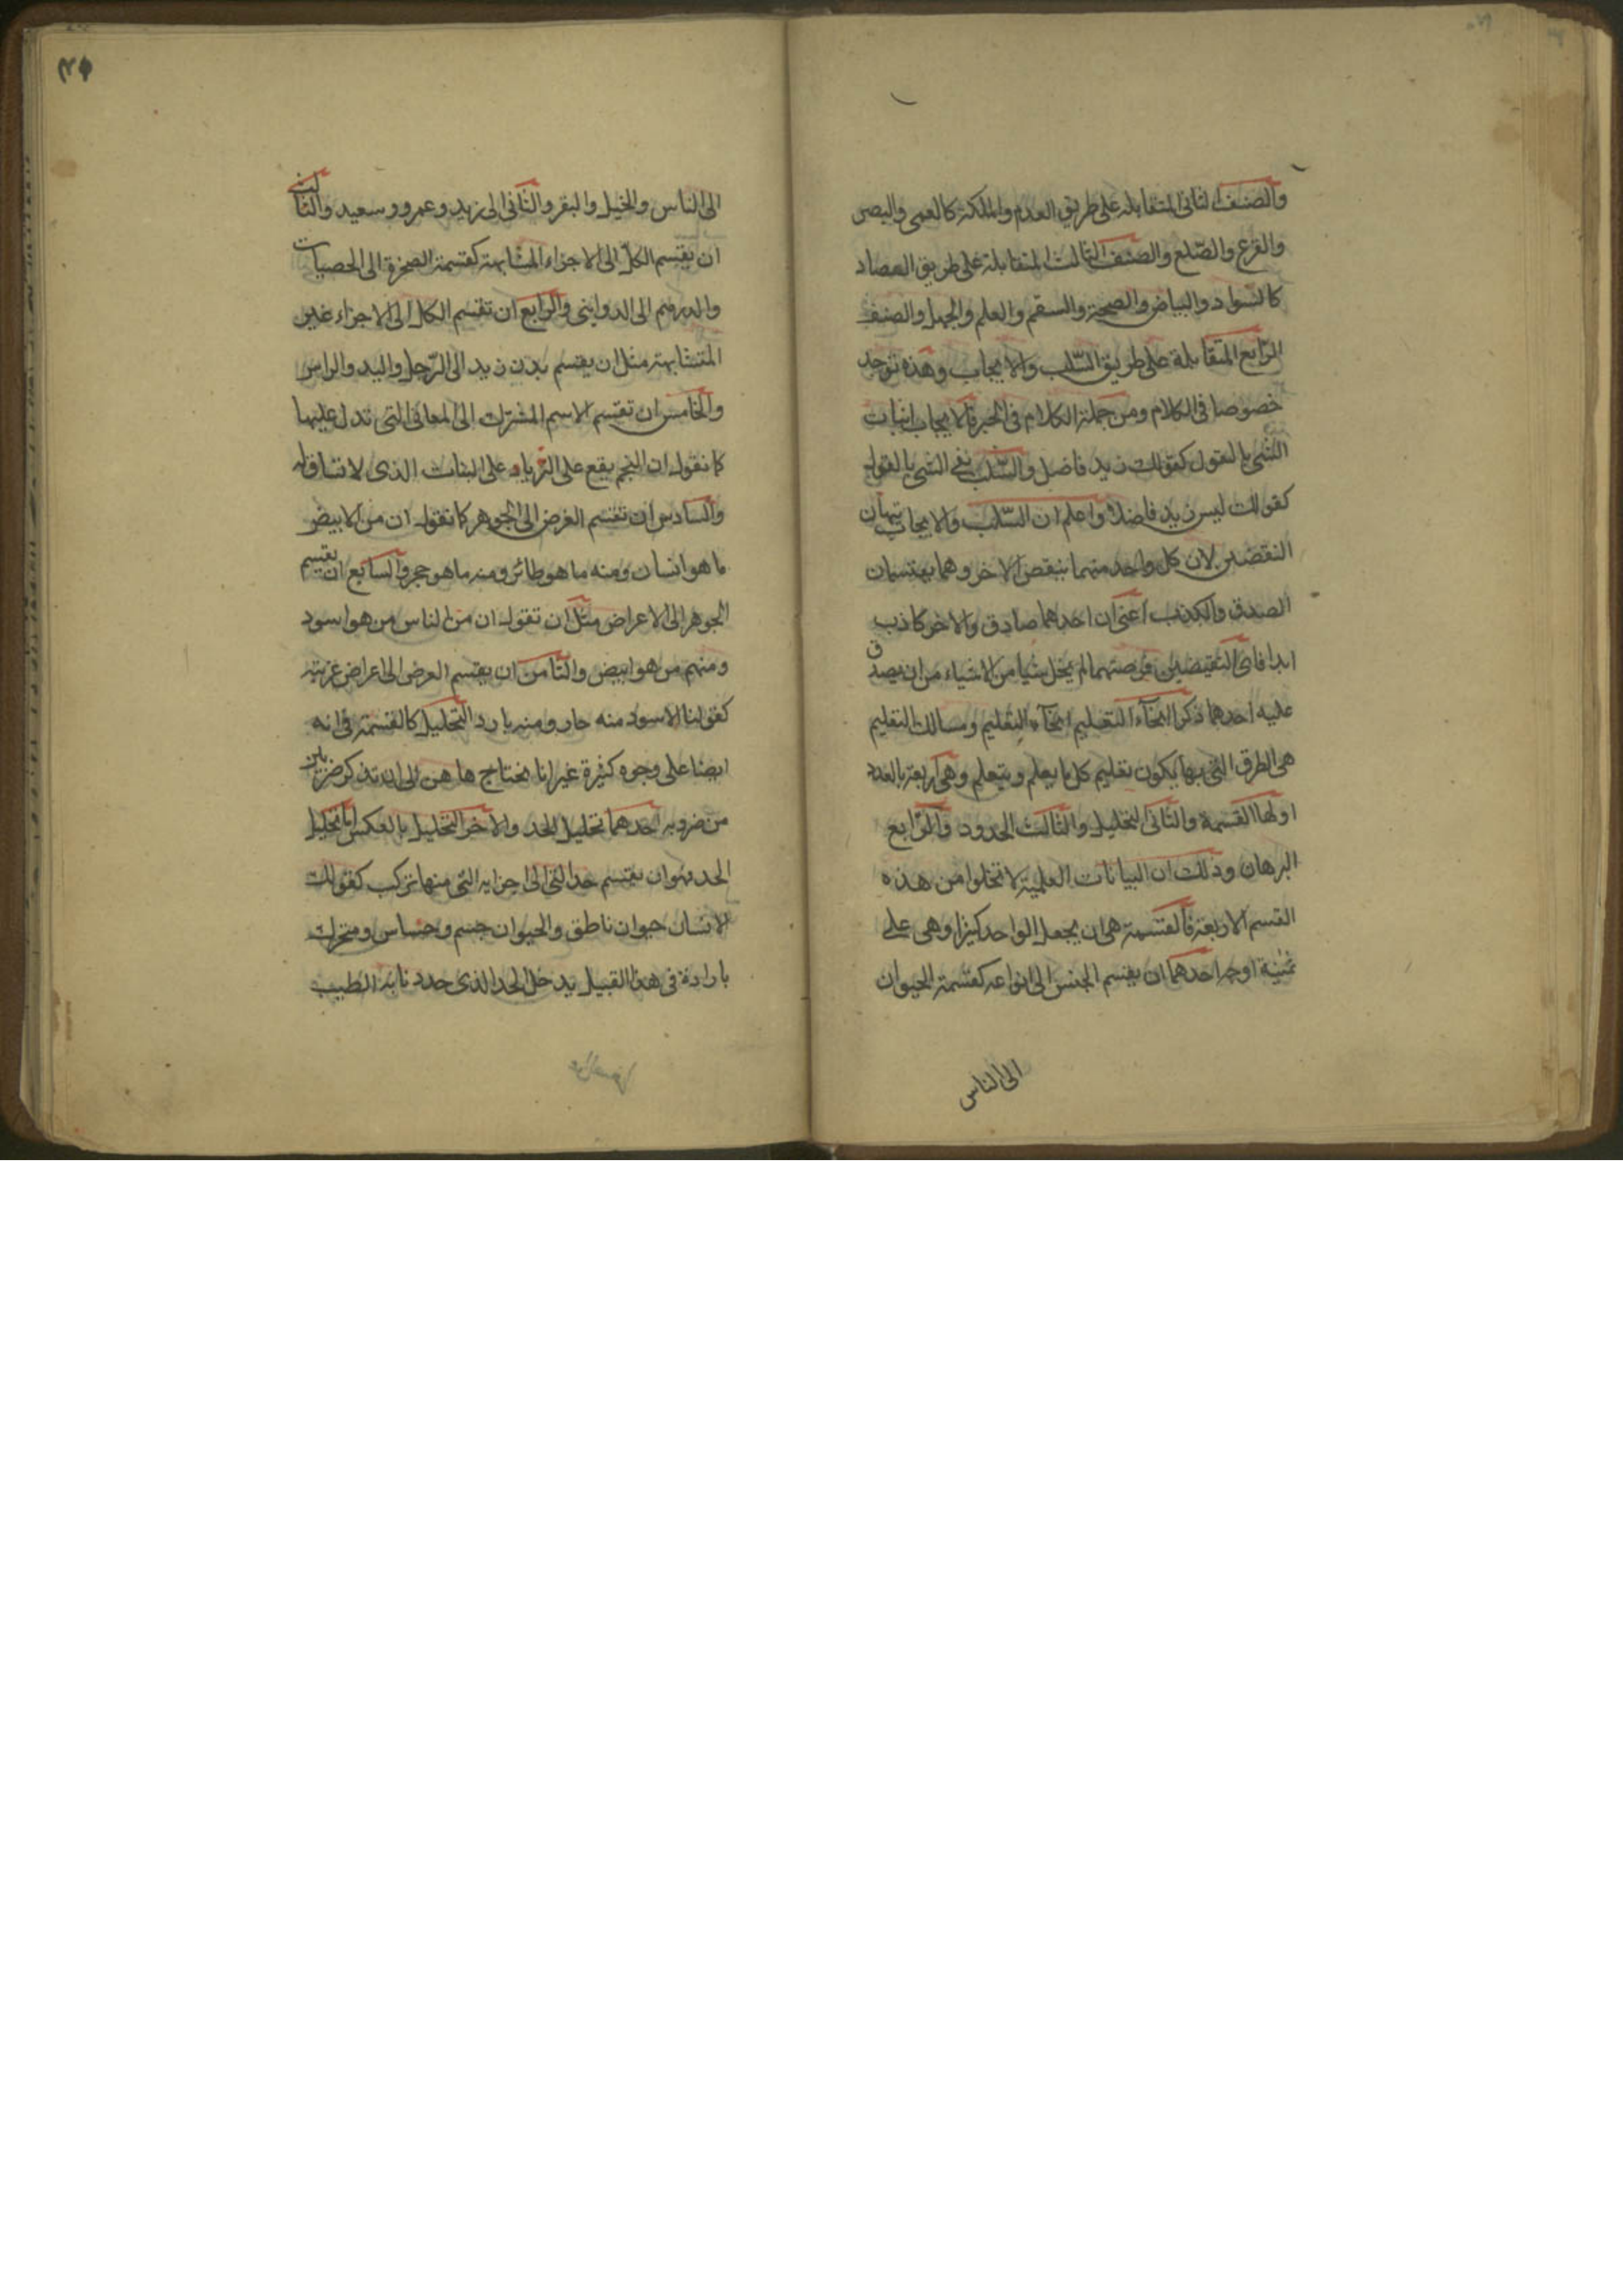 والصنف الثانى المتقابلة على طريق العدم والملكة كالعمى والبصر
والقرع والصّلع والصنف الثالث المتقابلة على طريق المضاد
كالسّواد والبياض والصحة والسقم والعلم والجهل والصنف
الرّابع المتقابلة على طريق السّلب والايجاب وهذه توجد
خصوصا فى الكلام ومن جملة الكلام فى الخبر فالايجاب اثبات
الشئ بالقول كقولك زيد فاضل والسّلب نفى الشى بالقول
كقولك ليس زيد فاضلا واعلم ان السّلب والايجاب
النقيضين لان كل واحد منهما ينقض الاخر وهما يقتسمان
الصدق والكذب اعنى ان احدهما صادق والاخر كاذب
ابدا فاى النقيضين فرضتهما لم يخل شيا من الاشياء من ان يصدق
عليه احدهما ذكر انحآء التعليم انحآء التعليم ومسالك التعليم
هى الطرق التى بها يكون تعليم كل ما يعلم ويتعلم وهى اربعة بالعدد
اولها القسمة والثانى التحليل والثالث الحدود والرّابع
البرهان وذلك ان البيانات العلمية لا تخلوا من هذه
القسم الاربعة فالقسمة هى ان يجعل الواحد كثيرا وهى على
ثمنية اوجه احدهما ان يقسم الجنس الى انواعه كقسمة الحيوان
الى الناس
٣٥
الى الناس والخيل والبقر والثانى الى زيد وعمرو وسعيد والثالث
ان يقسم الكلّ الى الاجزاء المشابهة كقسمة الصخرة الى الحصيات
والدرهم الى الدوانيق والرابع ان تقسم الكل الى الاجزاء غير
المتشابهة مثل ان يقسم بدن زيد الى الرّجل واليد والراس
والخامس ان تقسم الاسم المشترك الى المعانى التى تدل عليها
كما نقول ان النجم يقع على الثريا وعلى النبات الذى لا ساق له
والسادس ان تقسم العرض الى الجوهر كما نقول ان من الابيض
ما هو انسان ومنه ما هو طائر ومنه ما هو حجر والسابع ان يقسم
الجوهر الى الاعراض مثل ان تقول ان من الناس من هو اسود
ومنهم من هو ابيض والثامن ان يقسم العرض الى اعراض غريبة
كقولنا الاسود منه حار ومنه بارد التحليل كالقسمة فى انه
ايضا على وجوه كثيرة غير انا نحتاج هاهنا الى ان تذكر ضربين
من ضروبه احدهما تحليل الحد والاخر التحليل بالعكس اما تحليل
الحد فهو ان يقسم حد الشئ الى اجزايه التى منها تركب كقولك
الانسان حيوان ناطق والحيوان جسم وحساس ومتحرك
بارادة فى هذا القبيل يدخل الحد الذى حدد نا به الطبيب